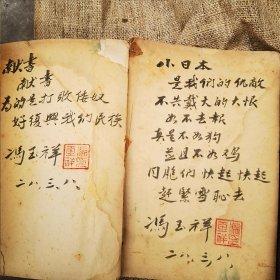 献书
献书
为的是打敗倭奴
好復興我们民族
馮玉祥
二八.三.八.
小日本
是我們的仇敵
不共戴天的大恨
如不去報
真是不如狗
並且不如鸡
同胞们快起快起
趕緊雪恥去
馮玉祥
二八.三.八.